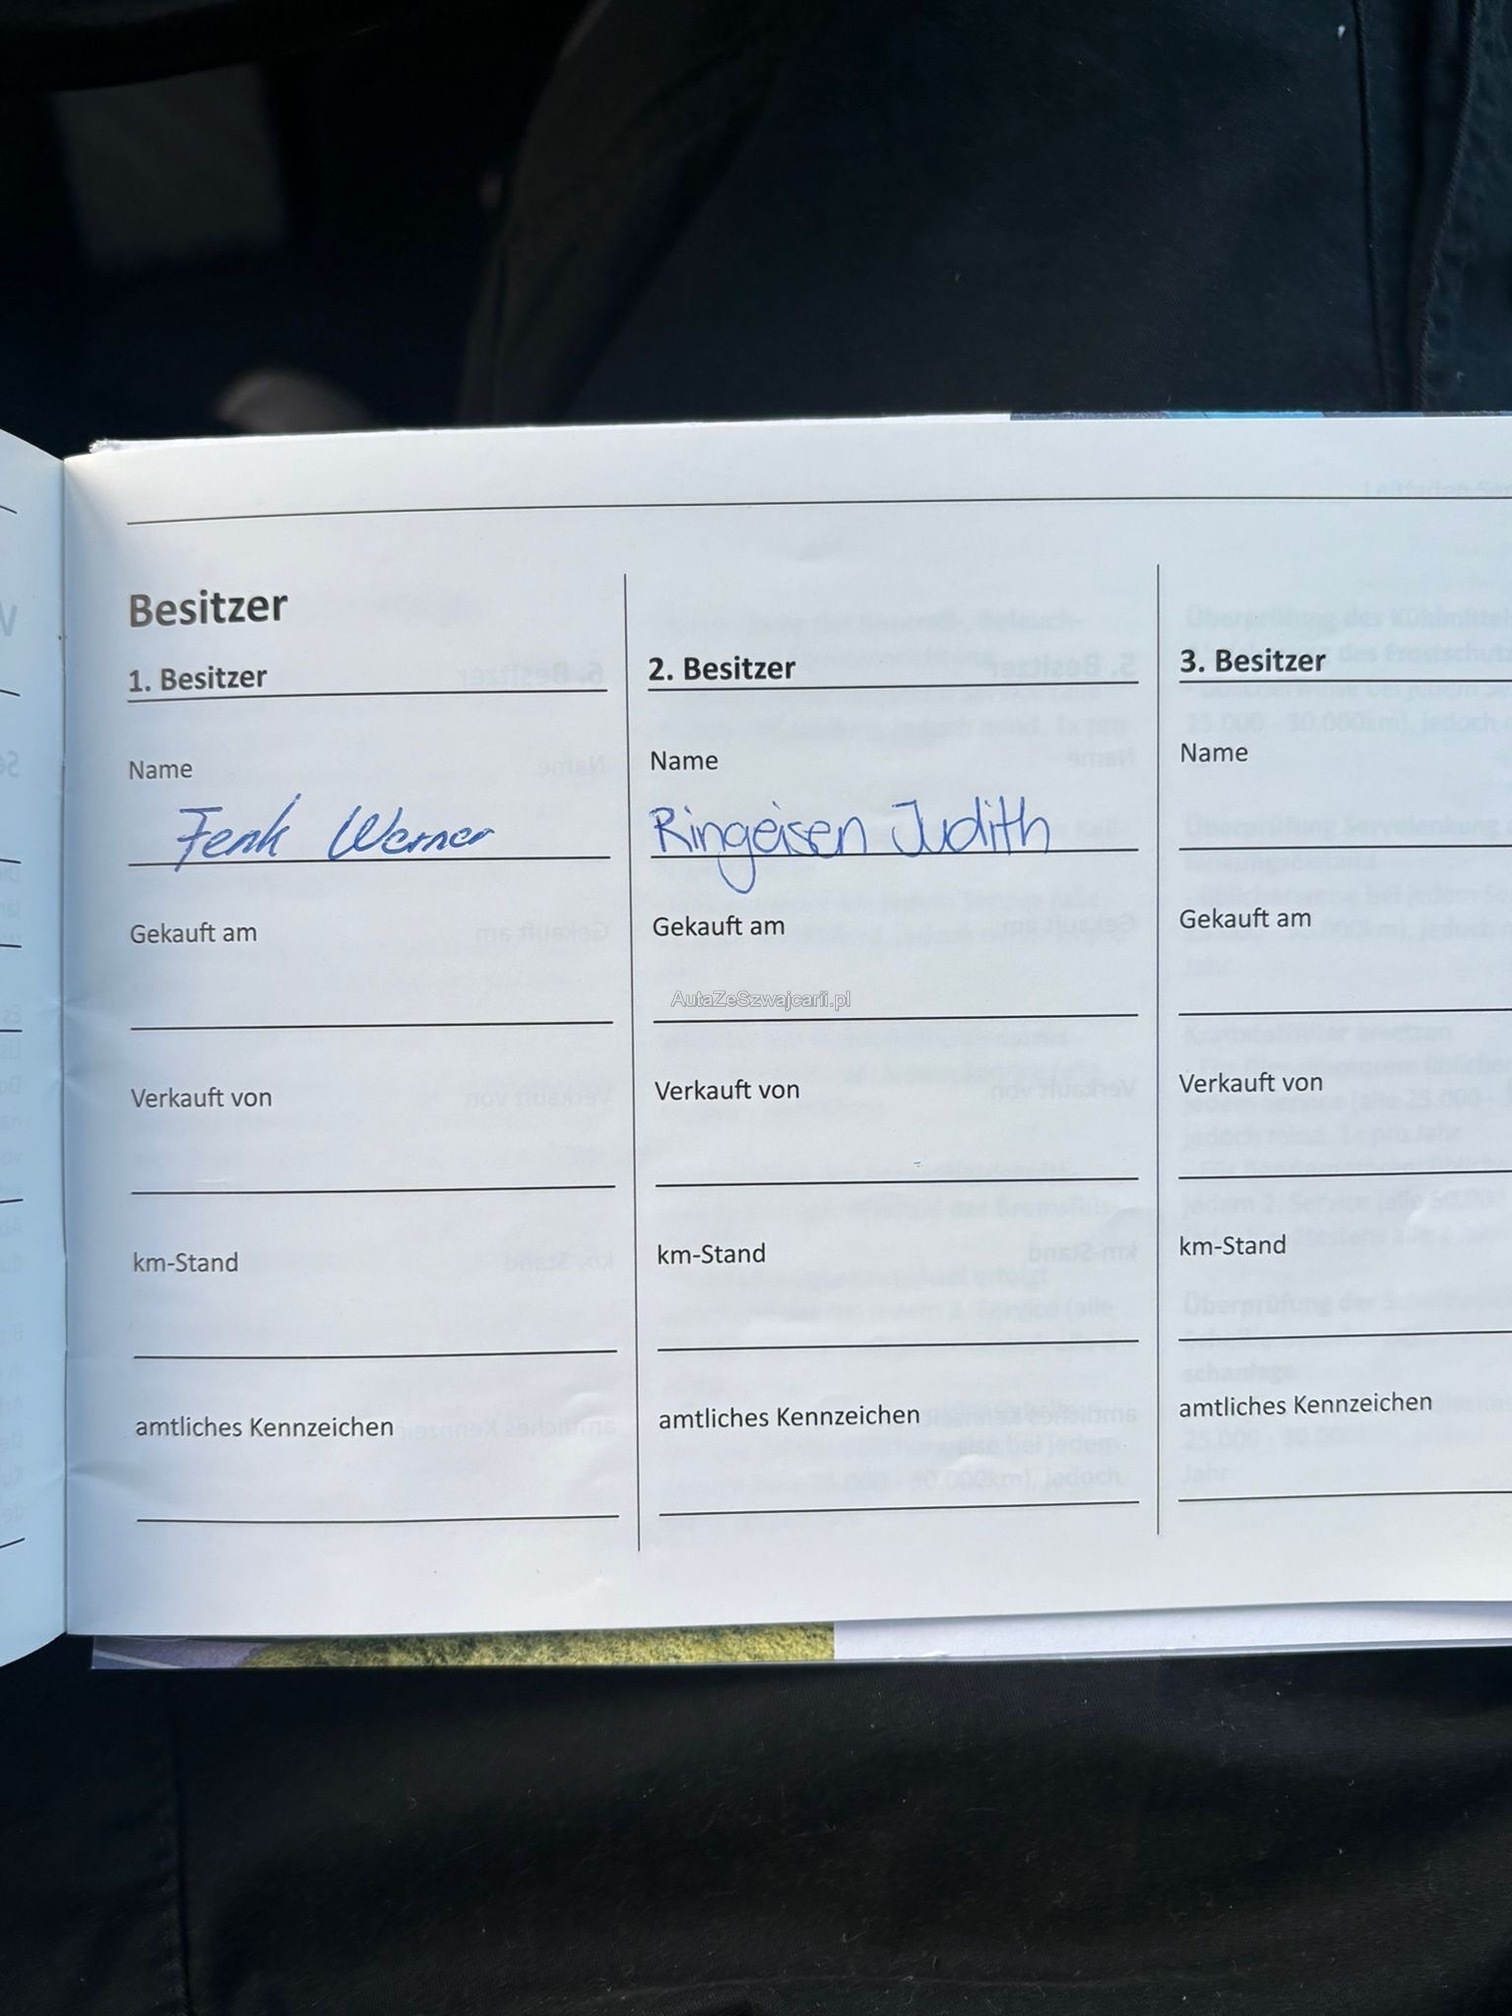 Besitzer
1. Besitzer
Name
Fenk Werner
Gekauft am
Verkauft von
km-Stand
amtliches Kennzeichen
2. Besitzer
Name
Ringeisen Judith
Gekauft am
AutaZeSzwajcarii.pl
Verkauft von
km-Stand
amtliches Kennzeichen
3. Besitzer
Name
Gekauft am
Verkauft von
km-Stand
amtliches Kennzeichen